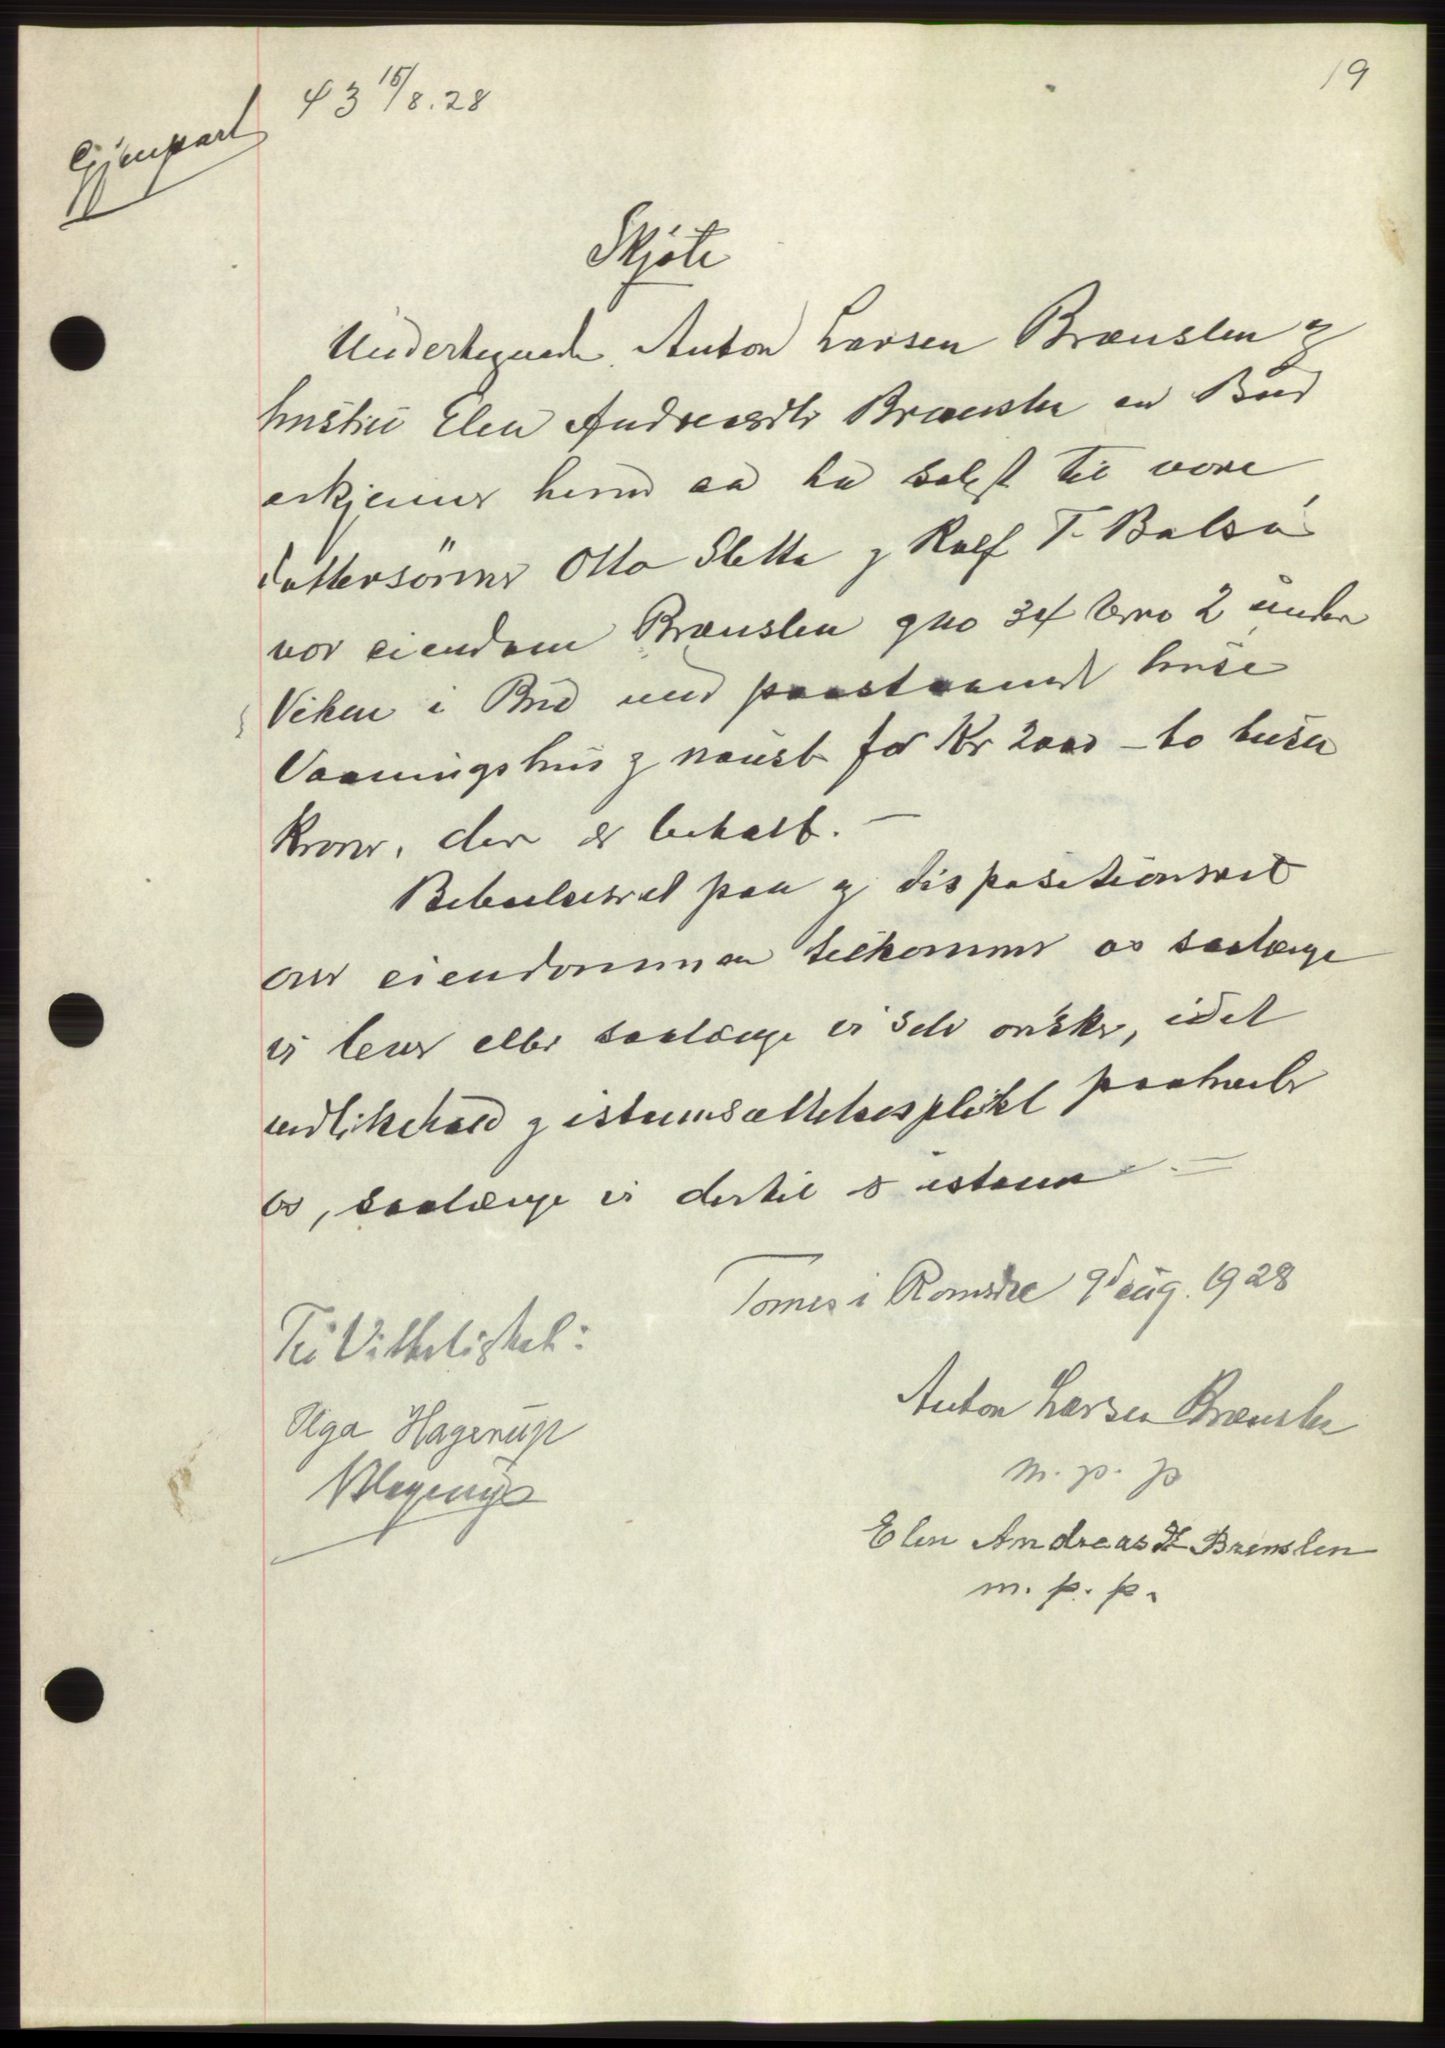 19
43 15/8.28
Gjenpart
Skjøte
Undertegnede Anton Larsen Brænslen og
hustru Elen Andreasdtr Brænslen av Bud
erkjenner herved aa ha solgt til vore
dattersønner Otto Sletta og Ralf T. Balsa
vor eiendom Brænslen gno 34 brno 2 under
Viken i Bud med paastaaende huse
Vaaningshus og naust for Kr 2000 - to tusen
Kroner, der er betalt. -
Beboelsesret paa og dispositionsret
over eiendommen tilkommer os saalænge
vi lever eller saalænge vi selv ønsker, idet
vedlikehold og istandsættelsesplikt paahviler
os, saalænge vi dertil er istand. -
Tornes i Romsdal 9d aug. 1928
Til Vitterlighet:
Olga Hagerup
Hagerup
Anton Larsen Brænslen
m. p. p
Elen Andreasd Brenslen
m. p. p.